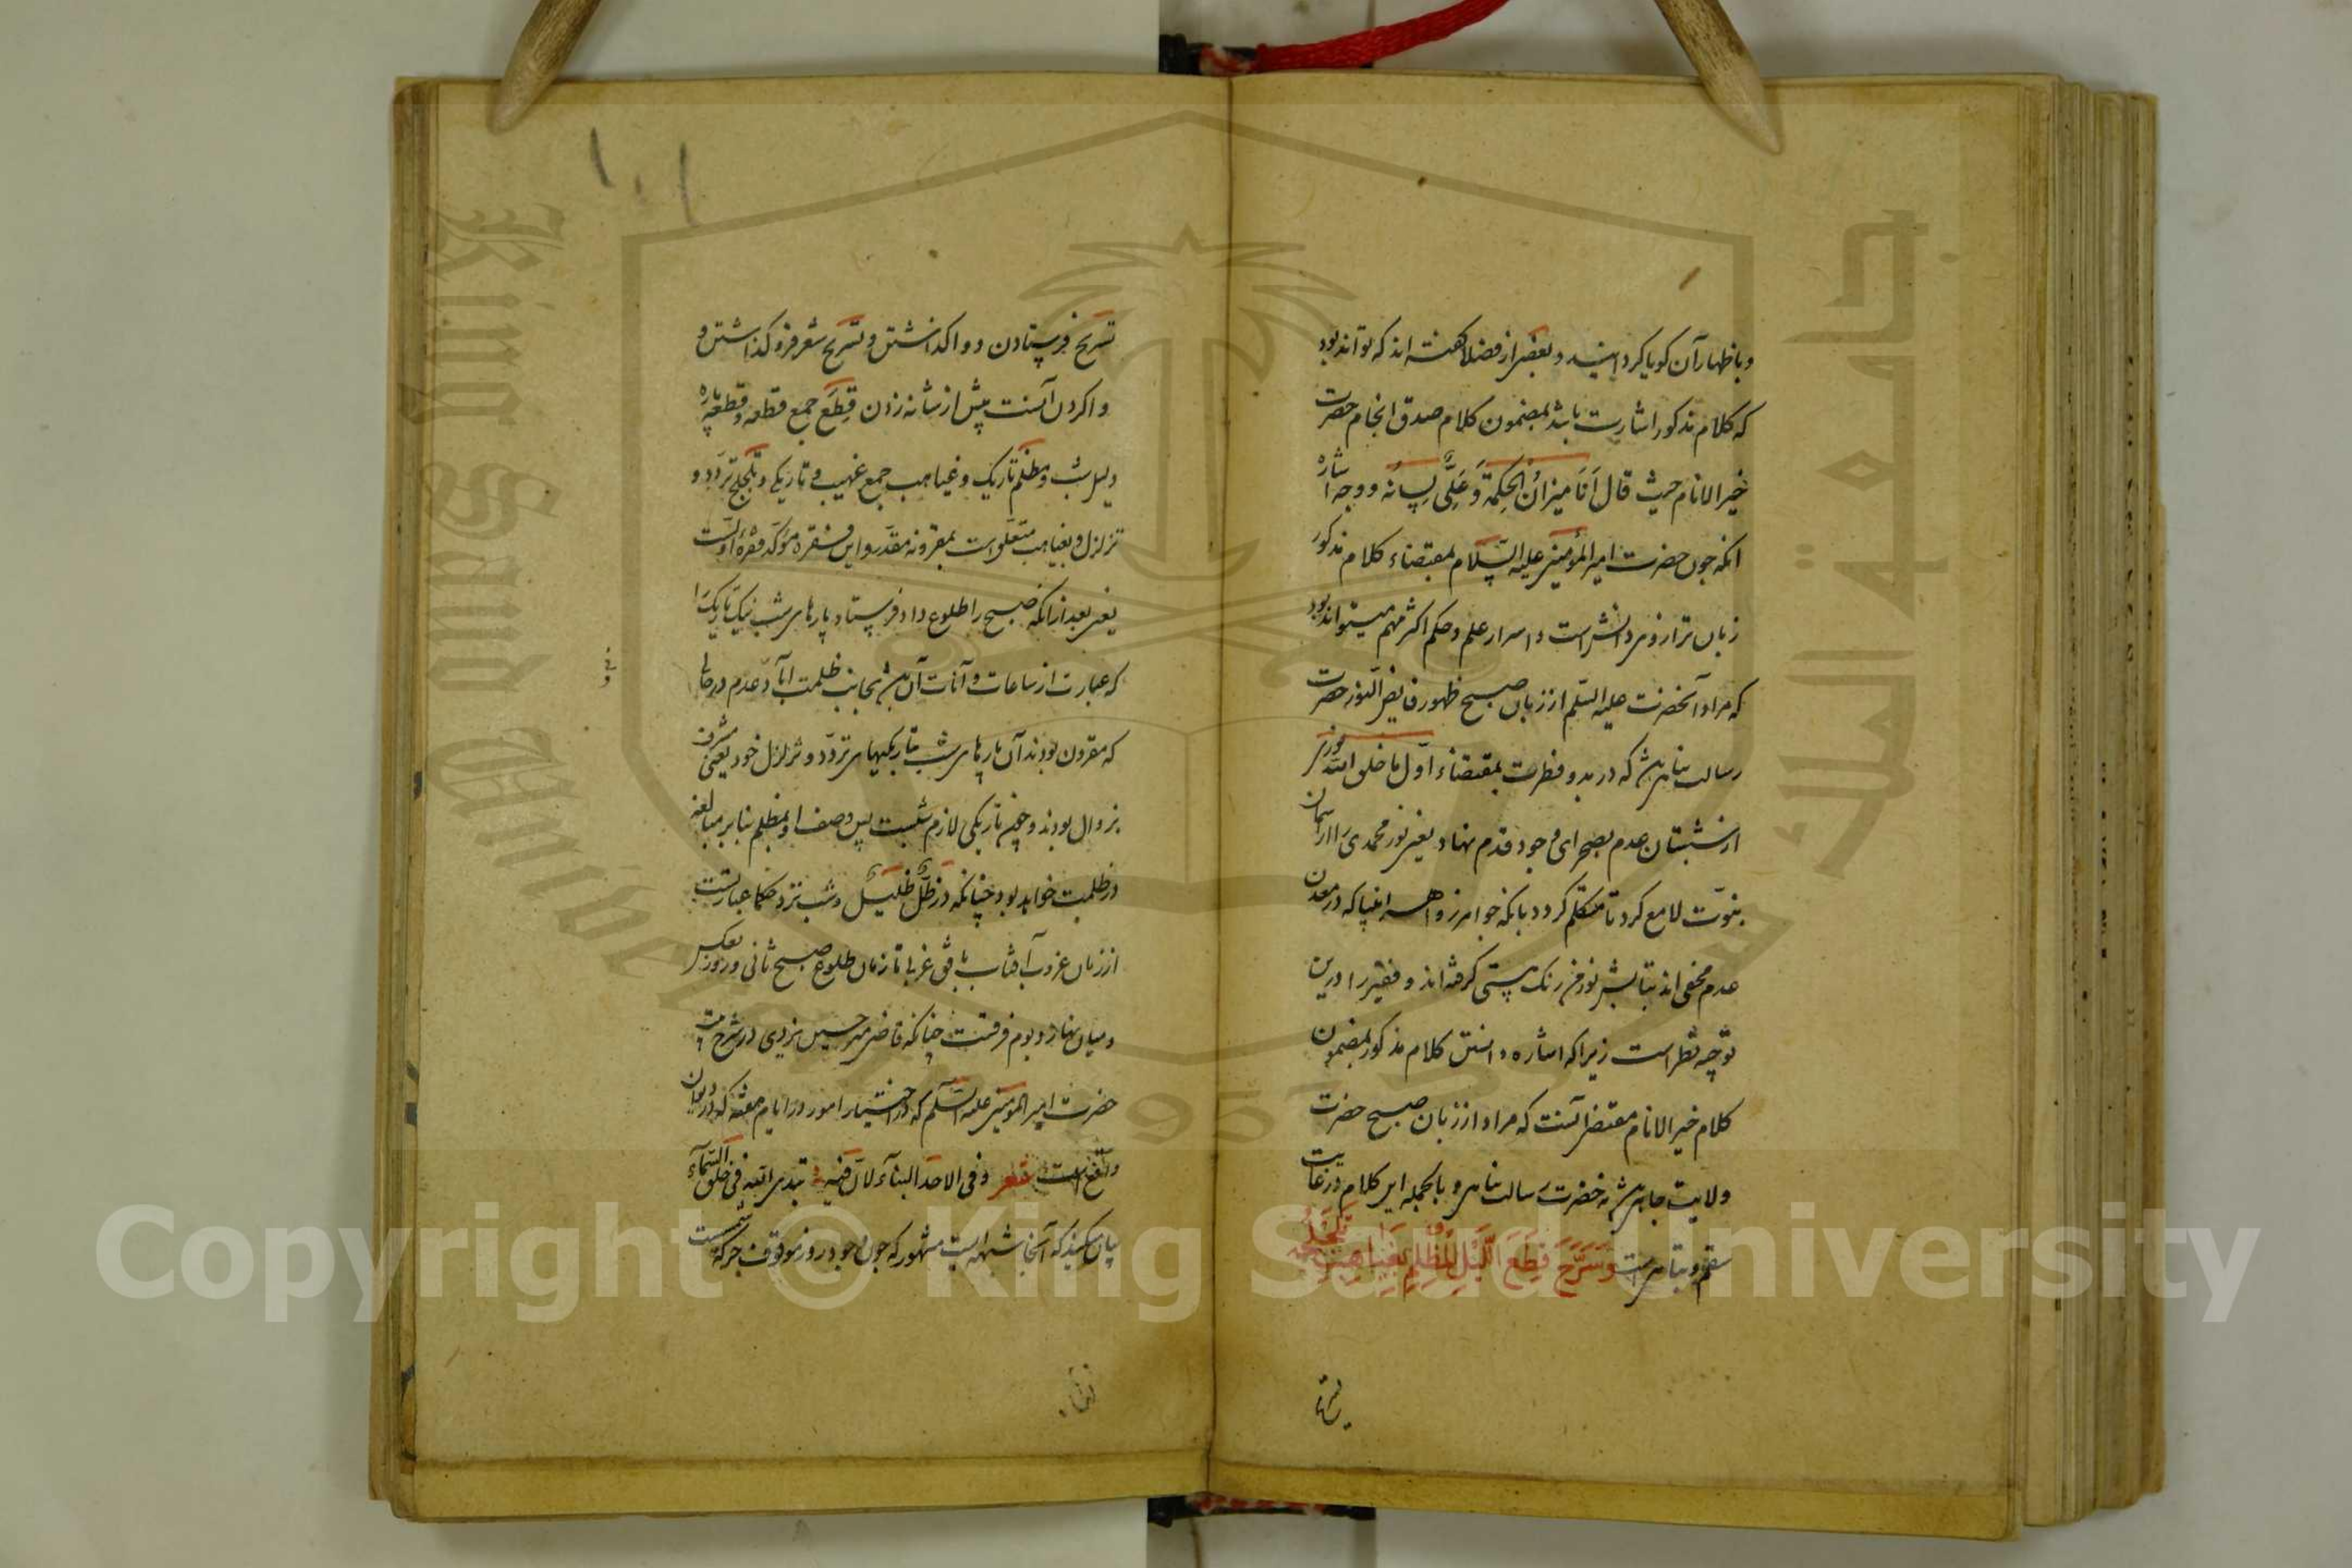 و باظهار آن کویا کردانید و بعضی از فضلا کفته اند که تواند بود
که کلام مذکور اشارت باشد بمضمون کلام صدق انجام حضرت
خیر الانام حیث قال اَنَا میزانُ الحِکمَةِ وَ عَلِیٌّ لِسانُه و وجه اشاره
انکه چون حضرت امیر المؤمنین علیه السّلام بمقتضاء کلام مذکور
زبان ترازوی دانش است و اسرار علم و حکم اکثر مهم میتواند بود
که مراد آنحضرت علیه السّلم از زبان صبح ظهور فایض النور حضرت
رسالت پناهی باشد که در بدو فطرت بمقتضاء اوّل ما خلق الله نوری
از شبستان عدم بصحرای وجود قدم نهاد یعنی نور محمدی را از آسمان
نبوّت لامع کرد تا متکلم کردد بانکه جواهر زواهر انبیا که در معدن
عدم مخفی اند بتابش نور من رنک هستی کرفته اند و فقیر را درین
توجیه نظر است زیرا که اشاره دانستن کلام مذکور بمضمون
کلام خیر الانام مقتضی آنست که مراد از زبان صبح حضرت
ولایت جاهی باشد نه حضرت رسالت پناهی و بالجمله این کلام در غایت
سقم و تباهی است وَ سَرَّحَ قِطَعَ اللَّیلِ المُظلِمِ بِغَیَاهِبِ تَلَجلُجِه
تسریح
تسریح فرستادن و واکذاشتن و تسریح شعر فرو کذاشتن و
واکردن آنست پیش از شانه زدن قِطَع جمع قطعه و قطعه پاره
و لیل شب و مظلم تاریک و غیاهب جمع غیهب و تاریکی و تلجلج تردّد و
تزلزل و بغیاهب متعلق است بمقرونه مقدّر و این فقره مؤکّد فقرهٔ اولست
یعنی بعد از انکه صبح را طلوع داد فرستاد پارهای شب نیک تاریک را
که عبارت از ساعات و آنات آن باشد بجانب ظلمت آباد عدم در حالی
که مقرون بودند آن پارهای شب بتاریکیهای تردّد و تزلزل خود یعنی مشرف
بزوال بودند و چون تاریکی لازم شبست پس وصف او بمظلم بنابر مبالغه
در ظلمت خواهد بود چنانکه در ظلٌّ ظَلیلٌ و شب نزد حکما عبارتست
از زمان غروب آفتاب بافق غربی تا زمان طلوع صبح ثانی و روز بعکس
و میان نهار و یوم فرقست چنانکه قاضی میر حسین یزدی در شرح بیت
حضرت امیر المؤمنین علیه السّلم که در اختیار امور در ایام هفته که در دیوان
واقع است شعر و فی الاحد البناء لانّ فیه تبدی الله فی خلق السّماء
بیان میکند که آنجا شبهه ایست مشهور که چون وجود روز موقوف بحرکت شمست